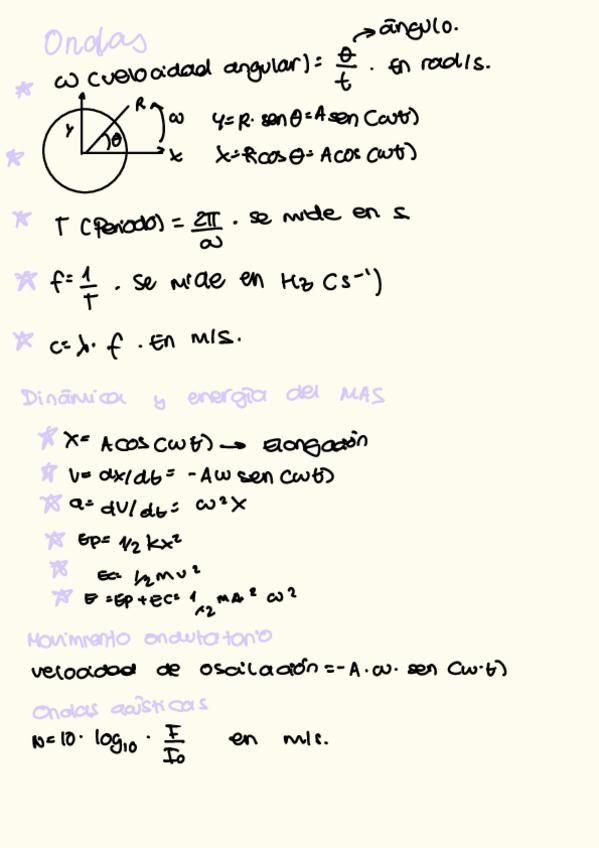 Ondas
→ ángulo.
ω (velocidad angular) = θ/t . En rad/s.
R
Y θ ω
X
y = R · sen θ = A sen (ωt)
x = R cos θ = A cos (ωt)
T (Periodo) = 2π/ω . se mide en s
f = 1/T . Se mide en Hz (s⁻¹)
c = λ · f . En m/s.
Dinámica y energía del MAS
X = A cos (ωt) → Elongación
V = dx/dt = -Aω sen (ωt)
a = dV/dt = ω²X
Ep = 1/2 kx²
Ec = 1/2 mv²
E = Ep + Ec = 1/2 mA² ω²
Movimiento ondulatorio
velocidad de oscilación = -A · ω · sen (ω·t)
Ondas acústicas
N = 10 · log₁₀ · I/I₀ en m/s.